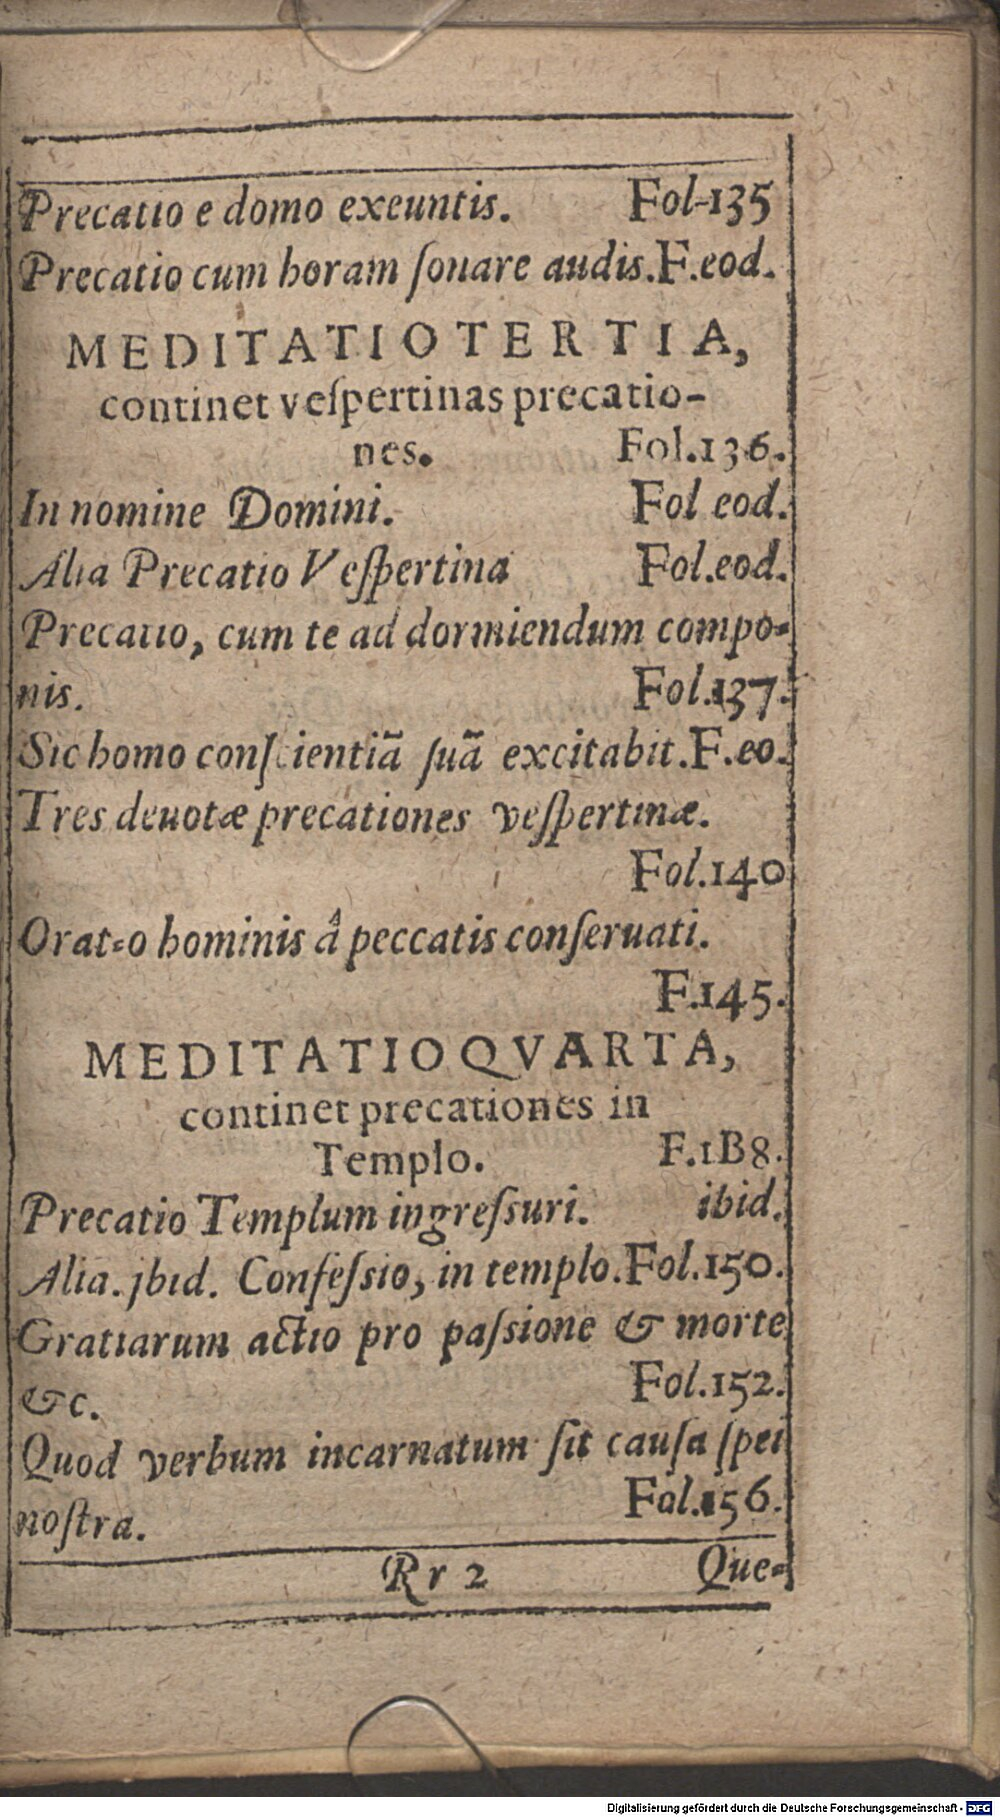 Precatio e domo exeuntis. Fol-135
Precatio cum horam ſonare audis. F.eod.
MEDITATIO TERTIA,
continet veſpertinas precatio-
nes. Fol.136.
In nomine Domini. Fol eod.
Alia Precatio Veſpertina Fol.eod.
Precatio, cum te ad dormiendum compo-
nis. Fol.137.
Sic homo conſcientiã ſuã excitabit. F.eo.
Tres deuotæ precationes veſpertinæ.
Fol.140
Orat=o hominis â peccatis conſeruati.
F.145.
MEDITATIO QVARTA,
continet precationes in
Templo. F.1B8.
Precatio Templum ingreſsuri. ibid.
Alia. jbid. Confeſsio, in templo. Fol.150.
Gratiarum actio pro paſsione & morte
&c. Fol.152.
Quod verbum incarnatum ſit cauſa ſpei
noſtra. Fol.156.
Rr 2 Que-
Digitalisierung gefördert durch die Deutsche Forschungsgemeinschaft - DFG